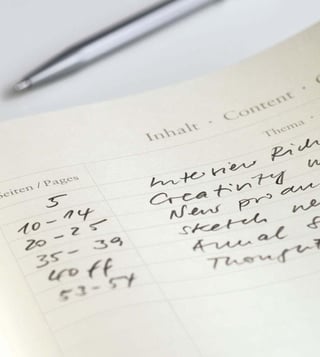 Inhalt · Content ·
Thema ·
Seiten / Pages
5 Interview Rich
10 - 14 Creativity
20 - 25 New produ
35 - 39 sketch ne
40 ff Annual
53 - 54 Thought